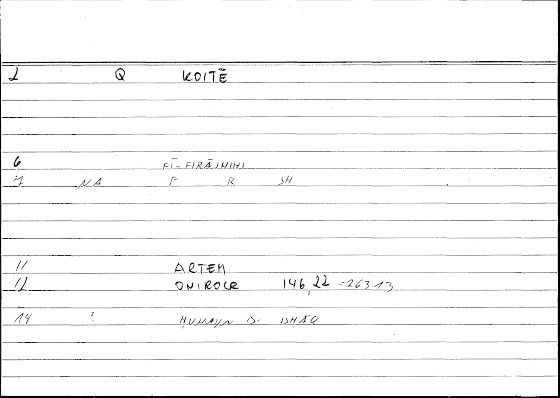 2 Q KOITĒ
6 FĪ-FIRĀŠIHI
7 NA F R SH
11 ARTEM
12 ONIROCR 146,22 - 263.13
14 ? HUNAYN B. ISHĀQ